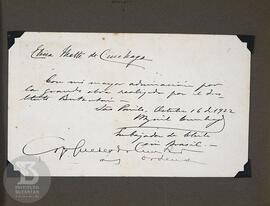 Elena Matte de Cruchaga
Con mi mayor admiracion por
la grande obra realizada por el
Instituto Butantan
São Paulo, Octubre 16 de 1922
Miguel Cruchaga
Embajador de Chile
en Brasil
ordens
INSTITUTO
BUTANTAN